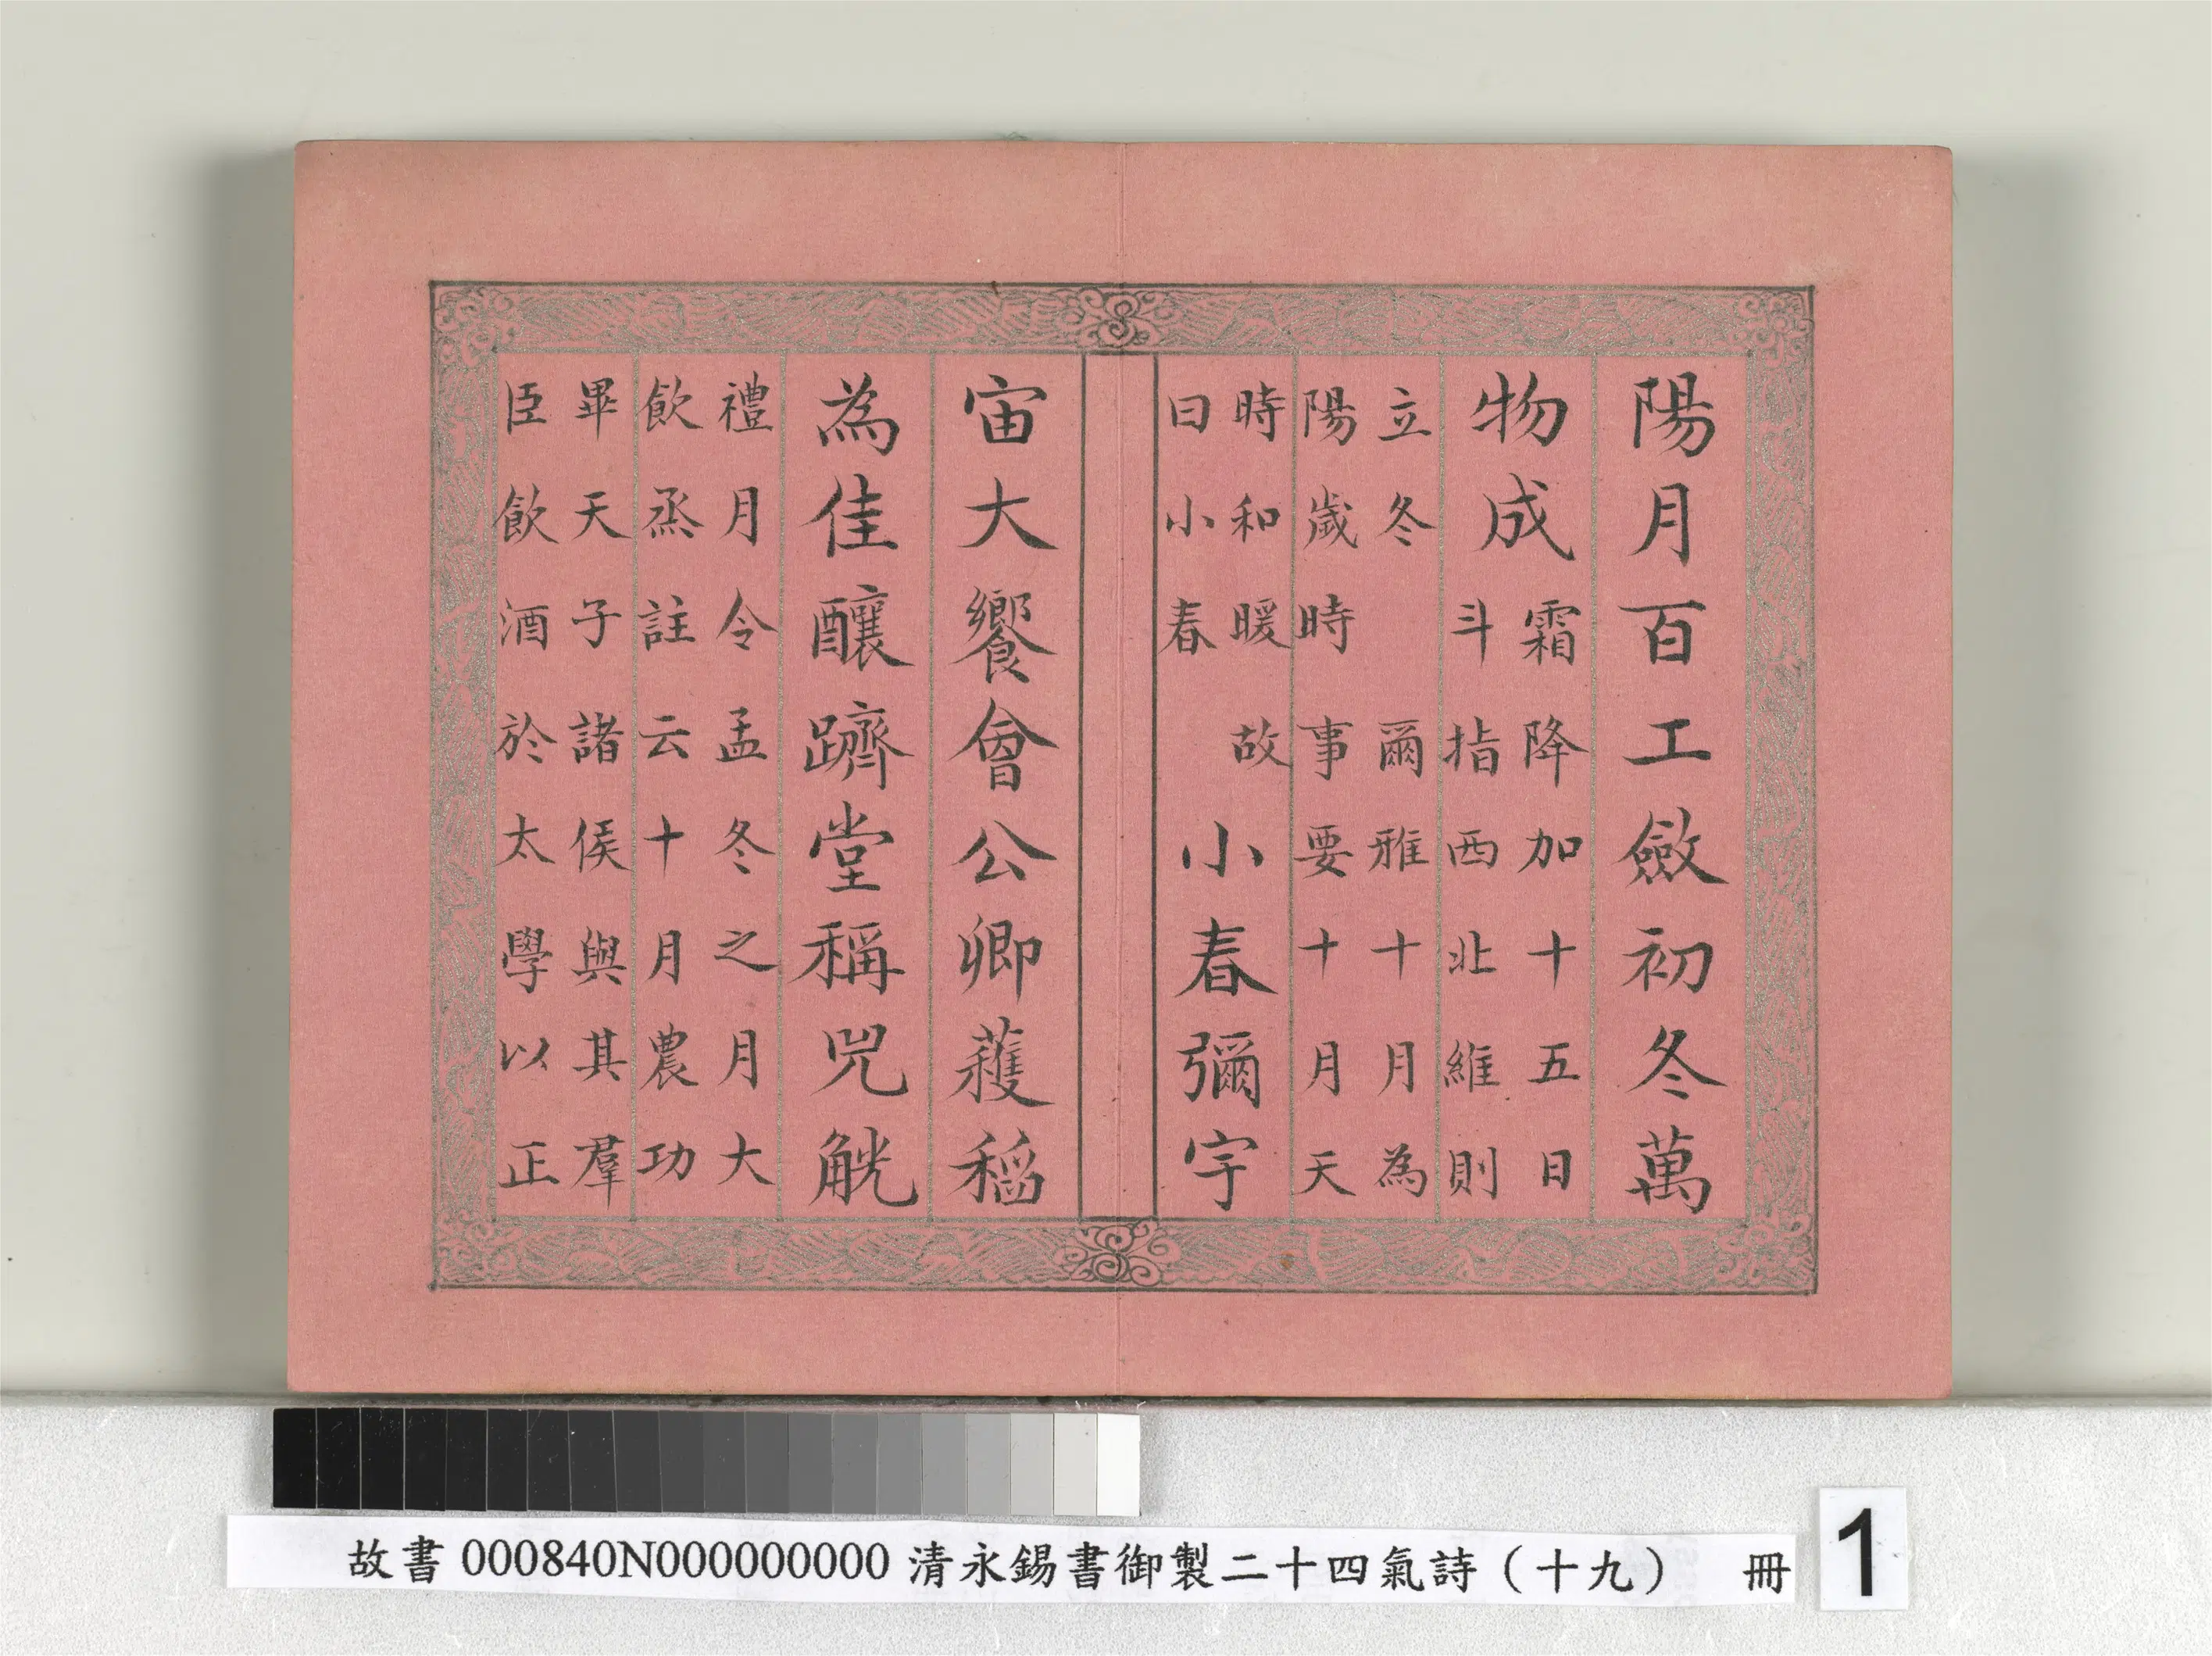 陽月百工斂初冬萬
物成
霜降加十五日
斗指西北維則
立冬 爾雅十月為
陽歲時事要十月天
時和暖故
曰小春
小春彌宇
宙大饗會公卿穫稻
為佳釀躋堂稱兕觥
禮月令孟冬之月大
飲烝註云十月農功
畢天子諸侯與其羣
臣飲酒於太學以正
故書 000840N000000000 清永錫書御製二十四氣詩（十九） 冊
1